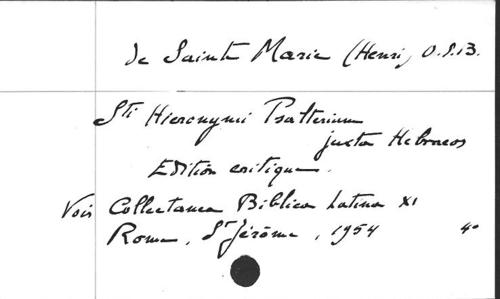 de Sainte Marie (Henri) O.S.B.
Sti Hieronymi Psalterium
juxta Hebraeos
Edition critique.
Voir Collectanea Biblica Latina XI
Rome, St Jérôme, 1954 4°